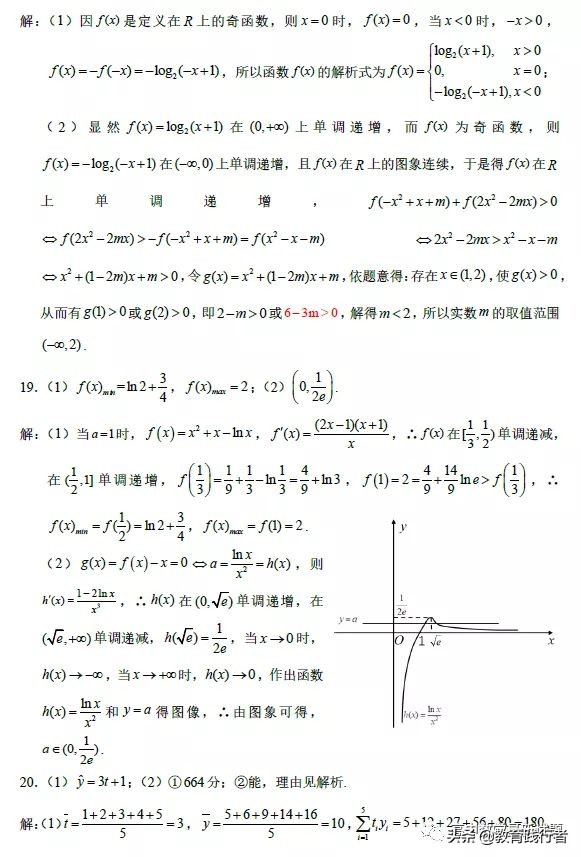 解：（1）因 f(x) 是定义在 R 上的奇函数，则 x=0 时，f(x)=0，当 x<0 时，-x>0，
f(x)=-f(-x)=-log₂(-x+1)，所以函数 f(x) 的解析式为 f(x)={log₂(x+1), x>0
0, x=0；
-log₂(-x+1), x<0
（2）显然 f(x)=log₂(x+1) 在 (0,+∞) 上单调递增，而 f(x) 为奇函数，则
f(x)=-log₂(-x+1) 在 (-∞,0) 上单调递增，且 f(x) 在 R 上的图象连续，于是得 f(x) 在 R
上单调递增，f(-x²+x+m)+f(2x²-2mx)>0
⇔f(2x²-2mx)>-f(-x²+x+m)=f(x²-x-m) ⇔2x²-2mx>x²-x-m
⇔x²+(1-2m)x+m>0，令 g(x)=x²+(1-2m)x+m，依题意得：存在 x∈(1,2)，使 g(x)>0，
从而有 g(1)>0 或 g(2)>0，即 2-m>0 或 6-3m>0，解得 m<2，所以实数 m 的取值范围
(-∞,2)．
19.（1）f(x)min=ln2+3/4，f(x)max=2；（2）(0, 1/2e)．
解：（1）当 a=1 时，f(x)=x²+x-lnx，f′(x)=(2x-1)(x+1)/x，∴f(x) 在 [1/3,1/2) 单调递减，
在 (1/2,1] 单调递增，f(1/3)=1/9+1/3-ln1/3=4/9+ln3，f(1)=2=4/9+14/9 lne>f(1/3)，∴
f(x)min=f(1/2)=ln2+3/4，f(x)max=f(1)=2．
（2）g(x)=f(x)-x=0⇔a=lnx/x²=h(x)，则
h′(x)=(1-2lnx)/x³，∴h(x) 在 (0,√e) 单调递增，在
(√e,+∞) 单调递减，h(√e)=1/2e，当 x→0 时，
h(x)→-∞，当 x→+∞ 时，h(x)→0，作出函数
h(x)=lnx/x² 和 y=a 得图像，∴由图象可得，
a∈(0, 1/2e)．
y
1/2e
y=a
O
1
√e
x
h(x)=lnx/x²
20.（1）ŷ=3t+1；（2）①664 分；②能，理由见解析.
解：（1）t̄=(1+2+3+4+5)/5=3，ȳ=(5+6+9+14+16)/5=10，∑⁵ᵢ₌₁tᵢyᵢ=5+12+27+56+80=180
头条@教育践行者